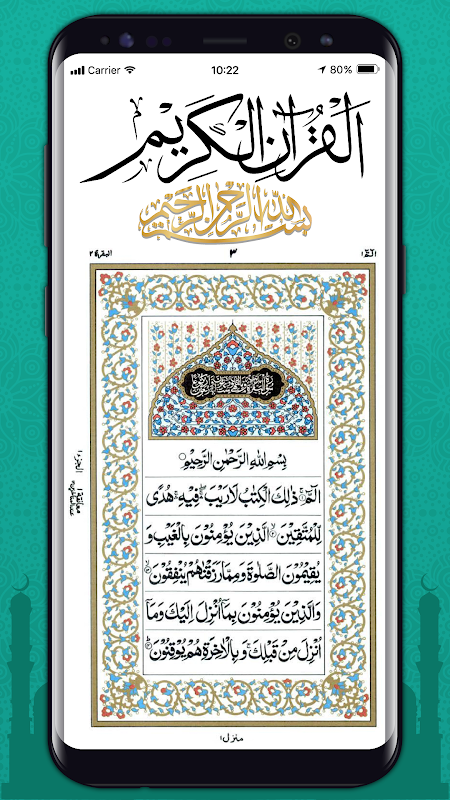 Carrier 10:22 80%
القرآن الكريم
بسم الله الرحمن الرحيم
الٓمّٓ ١ ٣ البقرة ٢
بِسْمِ اللّٰهِ الرَّحْمٰنِ الرَّحِيْمِ
الٓمّٓ ۚ ذٰلِكَ الْكِتٰبُ لَا رَيْبَ ۛ فِيْهِ ۛ هُدًى
لِّلْمُتَّقِيْنَ ۙ الَّذِيْنَ يُؤْمِنُوْنَ بِالْغَيْبِ وَ
يُقِيْمُوْنَ الصَّلٰوةَ وَمِمَّا رَزَقْنٰهُمْ يُنْفِقُوْنَ ۙ
وَالَّذِيْنَ يُؤْمِنُوْنَ بِمَآ اُنْزِلَ اِلَيْكَ وَمَآ
اُنْزِلَ مِنْ قَبْلِكَ ۚ وَبِالْاٰخِرَةِ هُمْ يُوْقِنُوْنَ ؕ
الجزء ١
معانقة
منزل ١